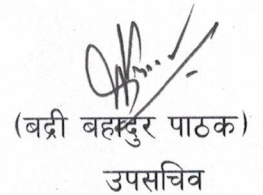 (बद्री बहादुर पाठक)
उपसचिव